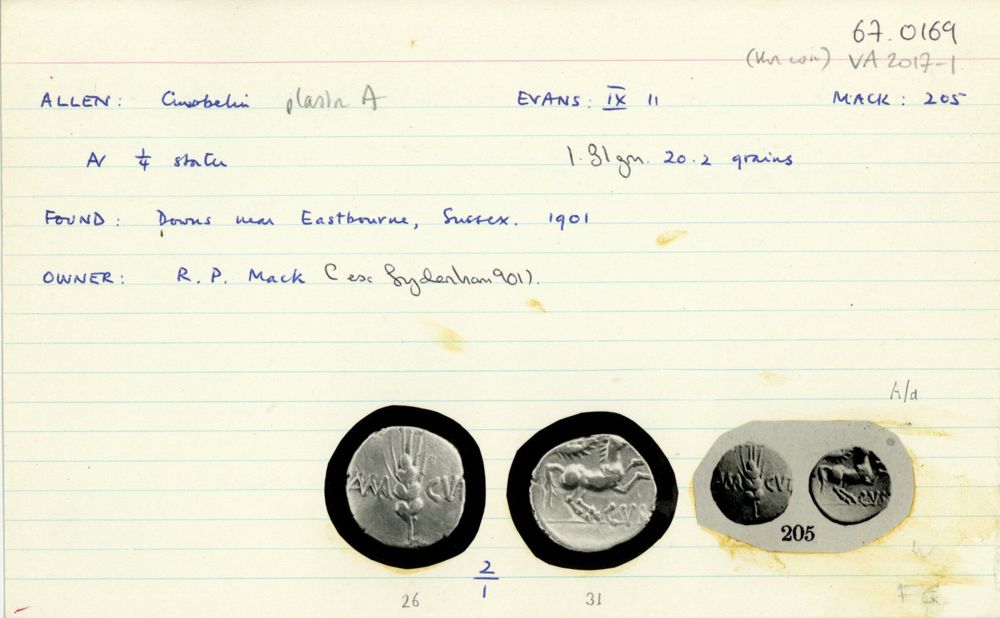 67.0169
(this coin) VA 2017-1
ALLEN: Cunobelin plastic A EVANS: IX 11 MACK: 205
AV 1/4 stater 1.31gm. 20.2 grains
FOUND: Downs near Eastbourne, Sussex. 1901
OWNER: R. P. Mack (ex Sydenham 901).
A/a
CAM CVN
CVN
CAM CVN
CVN
205
2/1
26 31